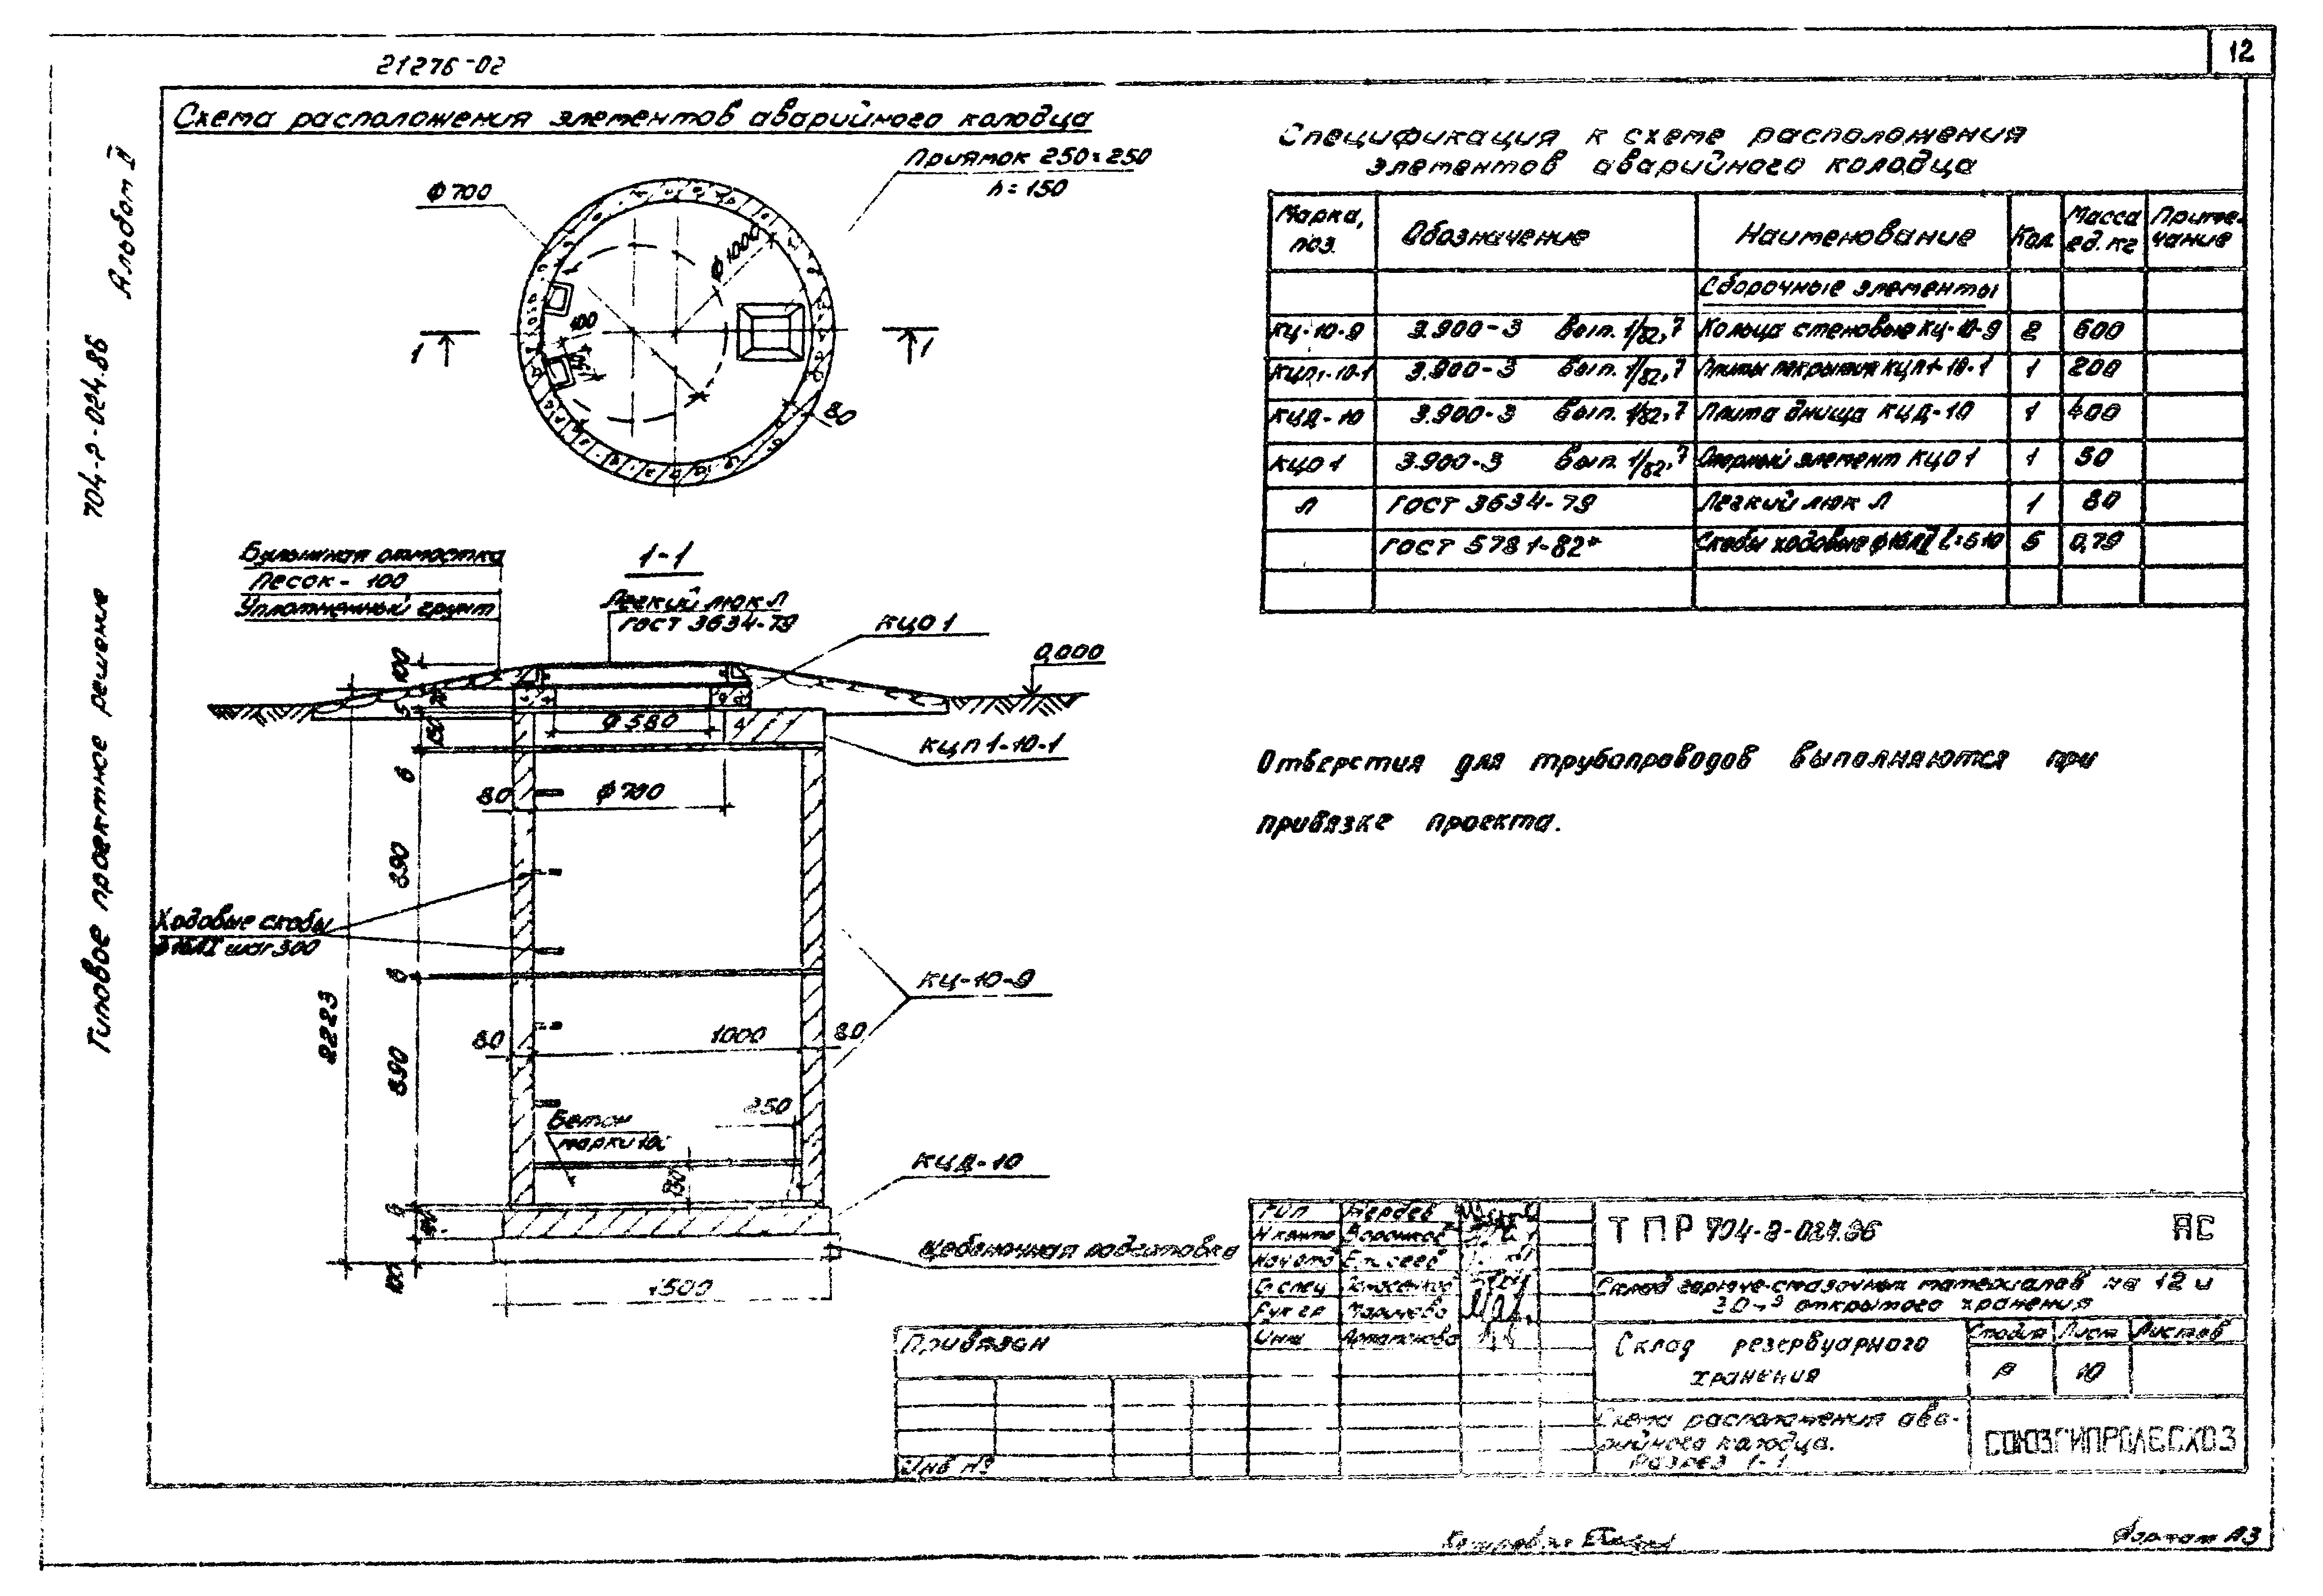 12
21276-02
Альбом II
704-2-024.86
Типовое проектное решение
Схема расположения элементов аварийного колодца
Приямок 250×250
h=150
ф700
ф1000
100
80
1
1
1-1
Булыжная отмостка
Песок - 100
Уплотненный грунт
Легкий люк Л
ГОСТ 3634-79
КЦО 1
0,000
100
5
150
ф580
КЦП 1-10-1
6
80
ф700
890
Ходовые скобы
ф16АI шаг 300
6
КЦ-10-9
2223
80
1000
80
890
250
Бетон
марки 100
КЦД-10
Щебеночная подготовка
100
1500
Спецификация к схеме расположения
элементов аварийного колодца
Марка, поз. Обозначение Наименование Кол. Масса ед. кг Примечание
Сборочные элементы
КЦ-10-9 3.900-3 вып. 1/82,7 Кольца стеновые КЦ-10-9 2 600
КЦП1-10-1 3.900-3 вып. 1/82,7 Плиты покрытия КЦП1-10-1 1 200
КЦД-10 3.900-3 вып. 1/82,7 Плита днища КЦД-10 1 400
КЦО 1 3.900-3 вып. 1/82,7 Опорный элемент КЦО 1 1 50
Л ГОСТ 3634-79 Легкий люк Л 1 80
ГОСТ 5781-82* Скобы ходовые ф16АI 5 0,79
Отверстия для трубопроводов выполняются при
привязке проекта.
Привязан
Инв №
ГИП
Н.контр Воронков
Нач.отд
Гл.спец
Рук.гр Маричева
Инж
ТПР 704-2-024.86 АС
Склад горюче-смазочных материалов на 12 и
30 м³ открытого хранения
Склад резервуарного
хранения
Стадия Лист Листов
Р 10
Схема расположения ава-
рийного колодца.
Разрез 1-1
СОЮЗГИПРОЛЕСХОЗ
Формат А3